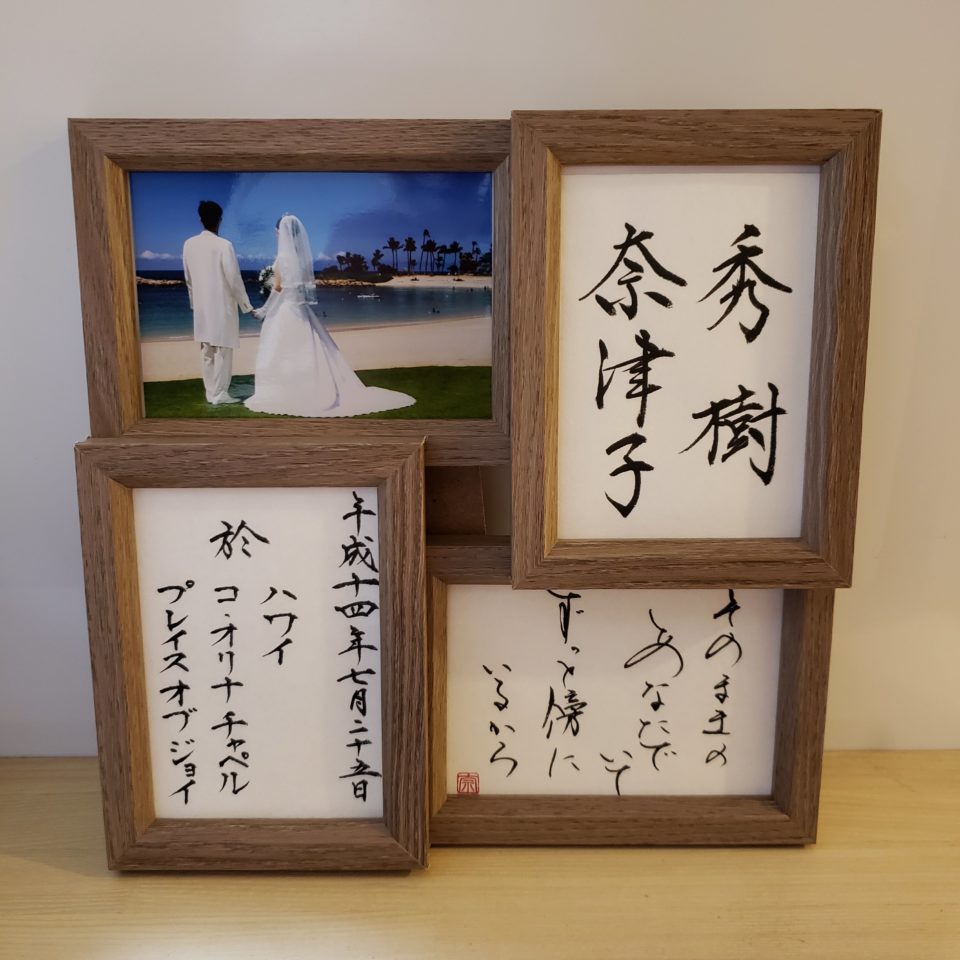 秀樹
奈津子
平成十四年七月二十五日
於
ハワイ
コ・オリナ チャペル
プレイスオブジョイ
そのままの
あなたで
いて
ずっと傍に
いるから